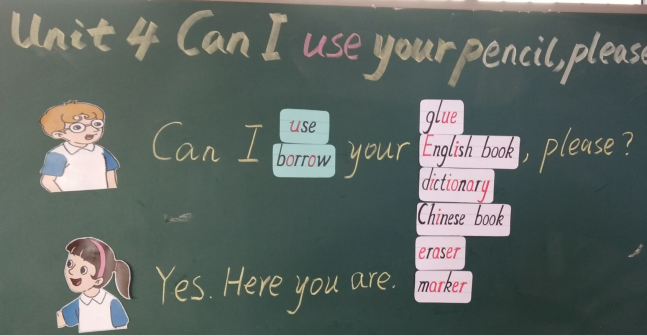 Unit 4 Can I use your pencil, please
glue
use
Can I your English book , please?
borrow
dictionary
Chinese book
eraser
Yes. Here you are. marker